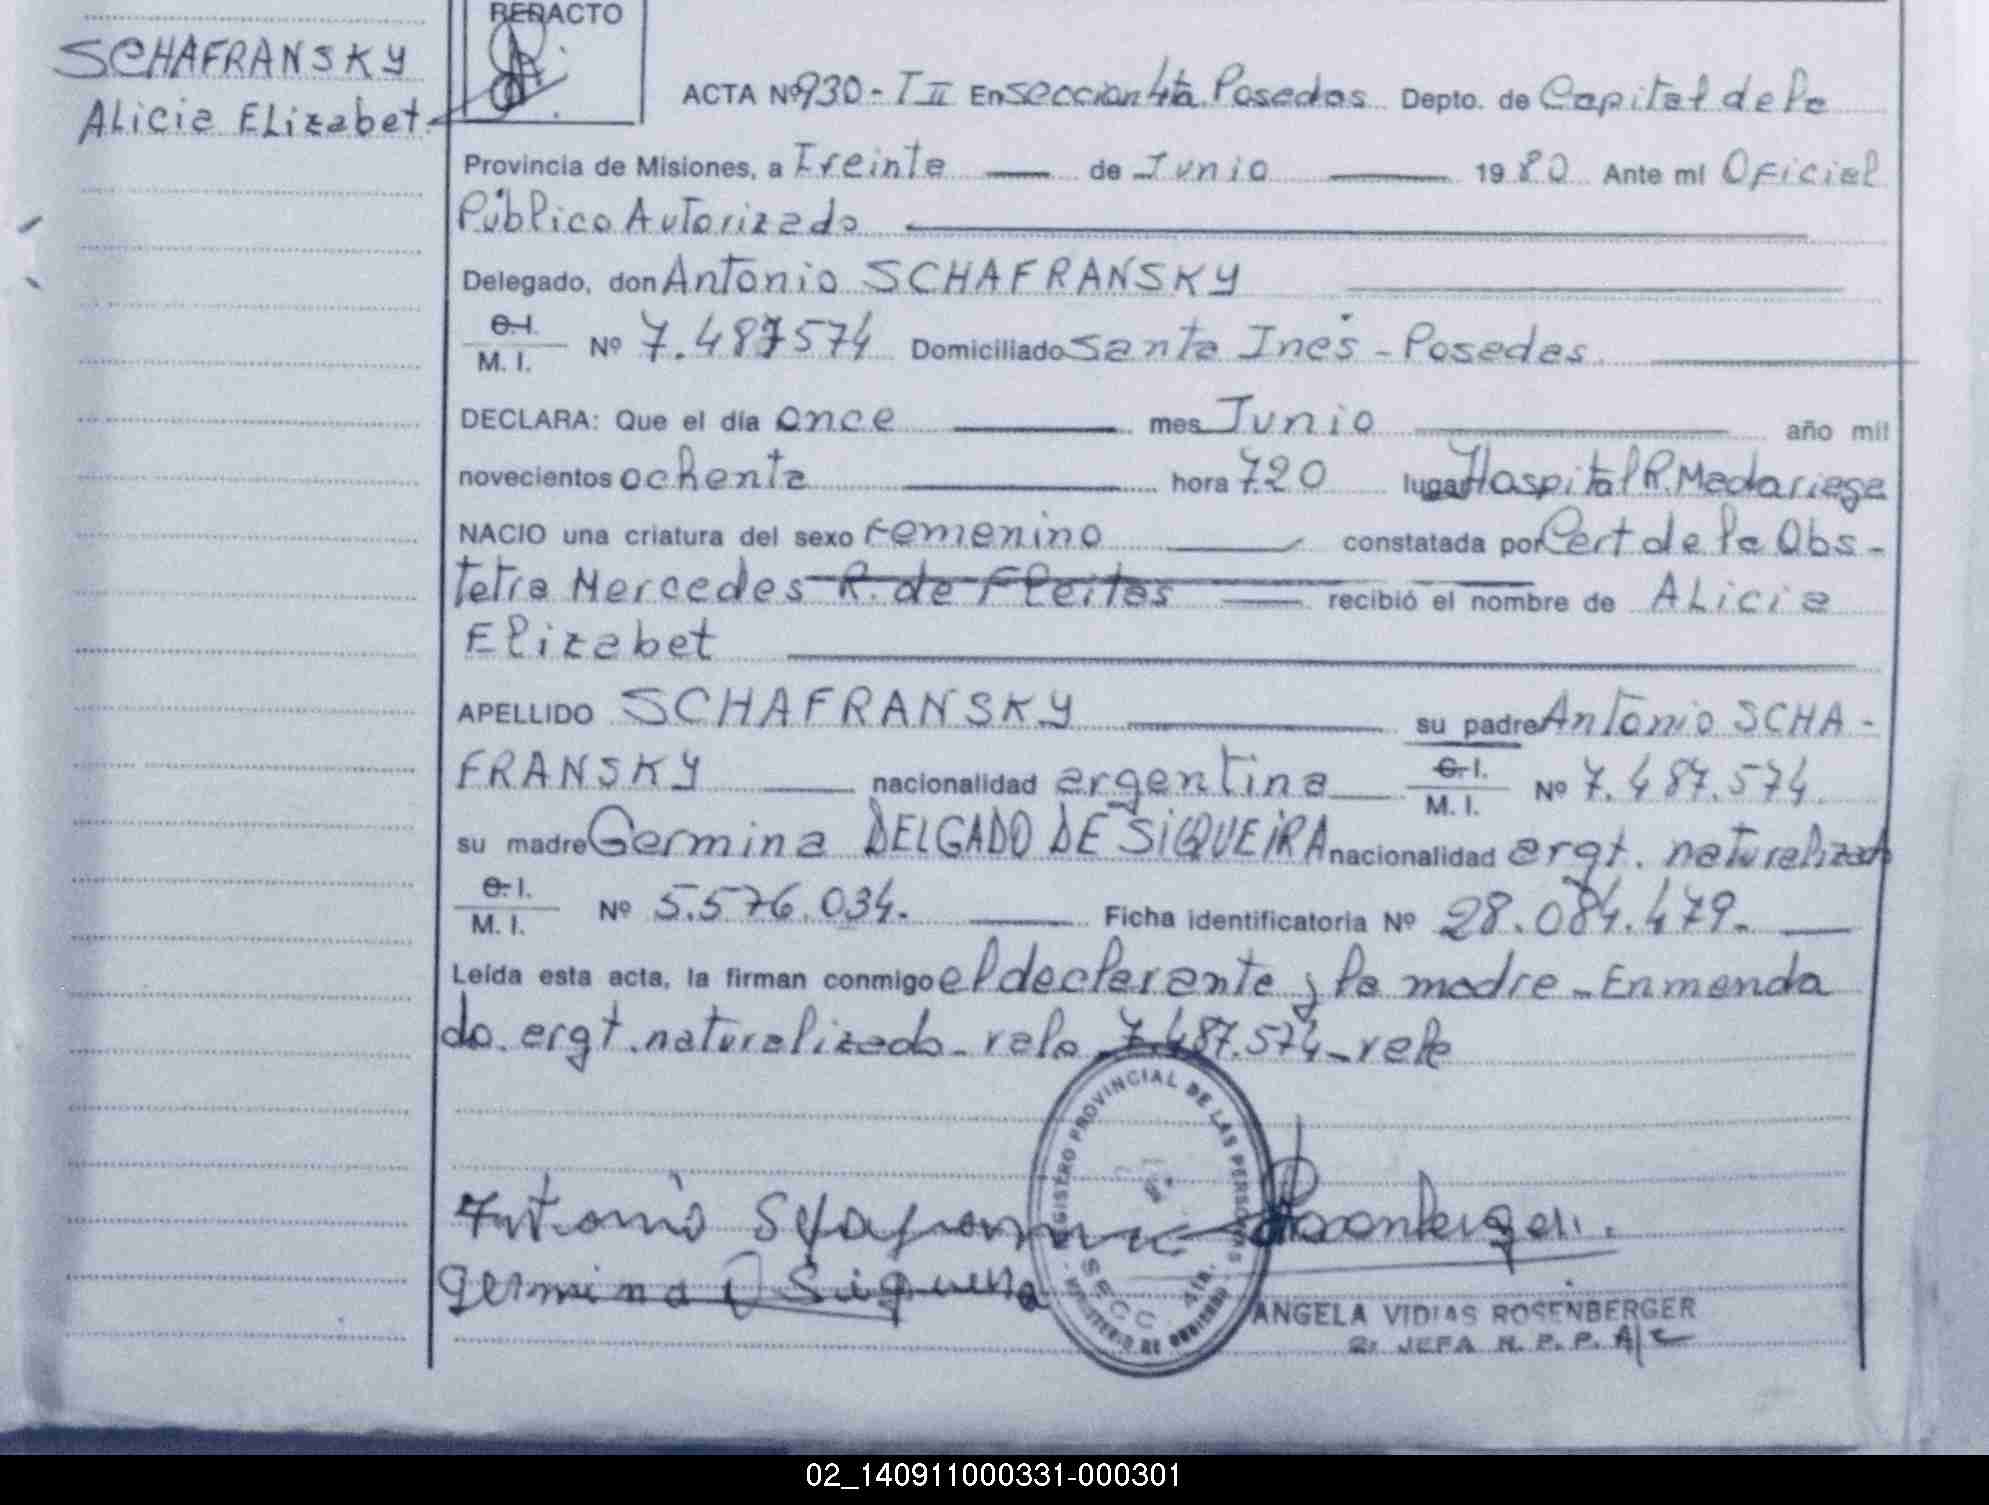 REDACTO
SCHAFRANSKY
Alicia Elizabet
ACTA Nº 930 - T II En seccion 4ta Posadas Depto. de Capital de la
Provincia de Misiones, a Treinta de Junio 1980 Ante mí Oficial
Público Autorizado
Delegado, don Antonio SCHAFRANSKY
C.I.
M. I. Nº 7.487574 Domiciliado Santa Inés - Posadas
DECLARA: Que el día once mes Junio año mil
novecientos ochenta hora 7.20 lugar Hospital R. Madariaga
NACIO una criatura del sexo femenino constatada por Cert de la Obs-
tetra Mercedes R. de Fleitas recibió el nombre de Alicia
Elizabet
APELLIDO SCHAFRANSKY su padre Antonio SCHA-
FRANSKY nacionalidad argentina C.I. M. I. Nº 7.487.574.
su madre Germina DELGADO DE SIQUEIRA nacionalidad argt. naturalizada
C.I.
M. I. Nº 5.576.034. Ficha identificatoria Nº 28.084.479.
Leída esta acta, la firman conmigo el declarante y la madre - Enmenda
do. argt. naturalizada - vale 7.487.574 - vale
REGISTRO PROVINCIAL DE LAS PERSONAS
SECC 4ta.
MINISTERIO DE GOBIERNO
Antonio
Germina D Siqueira
Rosenberger.
ANGELA VIDIAS ROSENBERGER
JEFA R. P. P. A/C
02_140911000331-000301